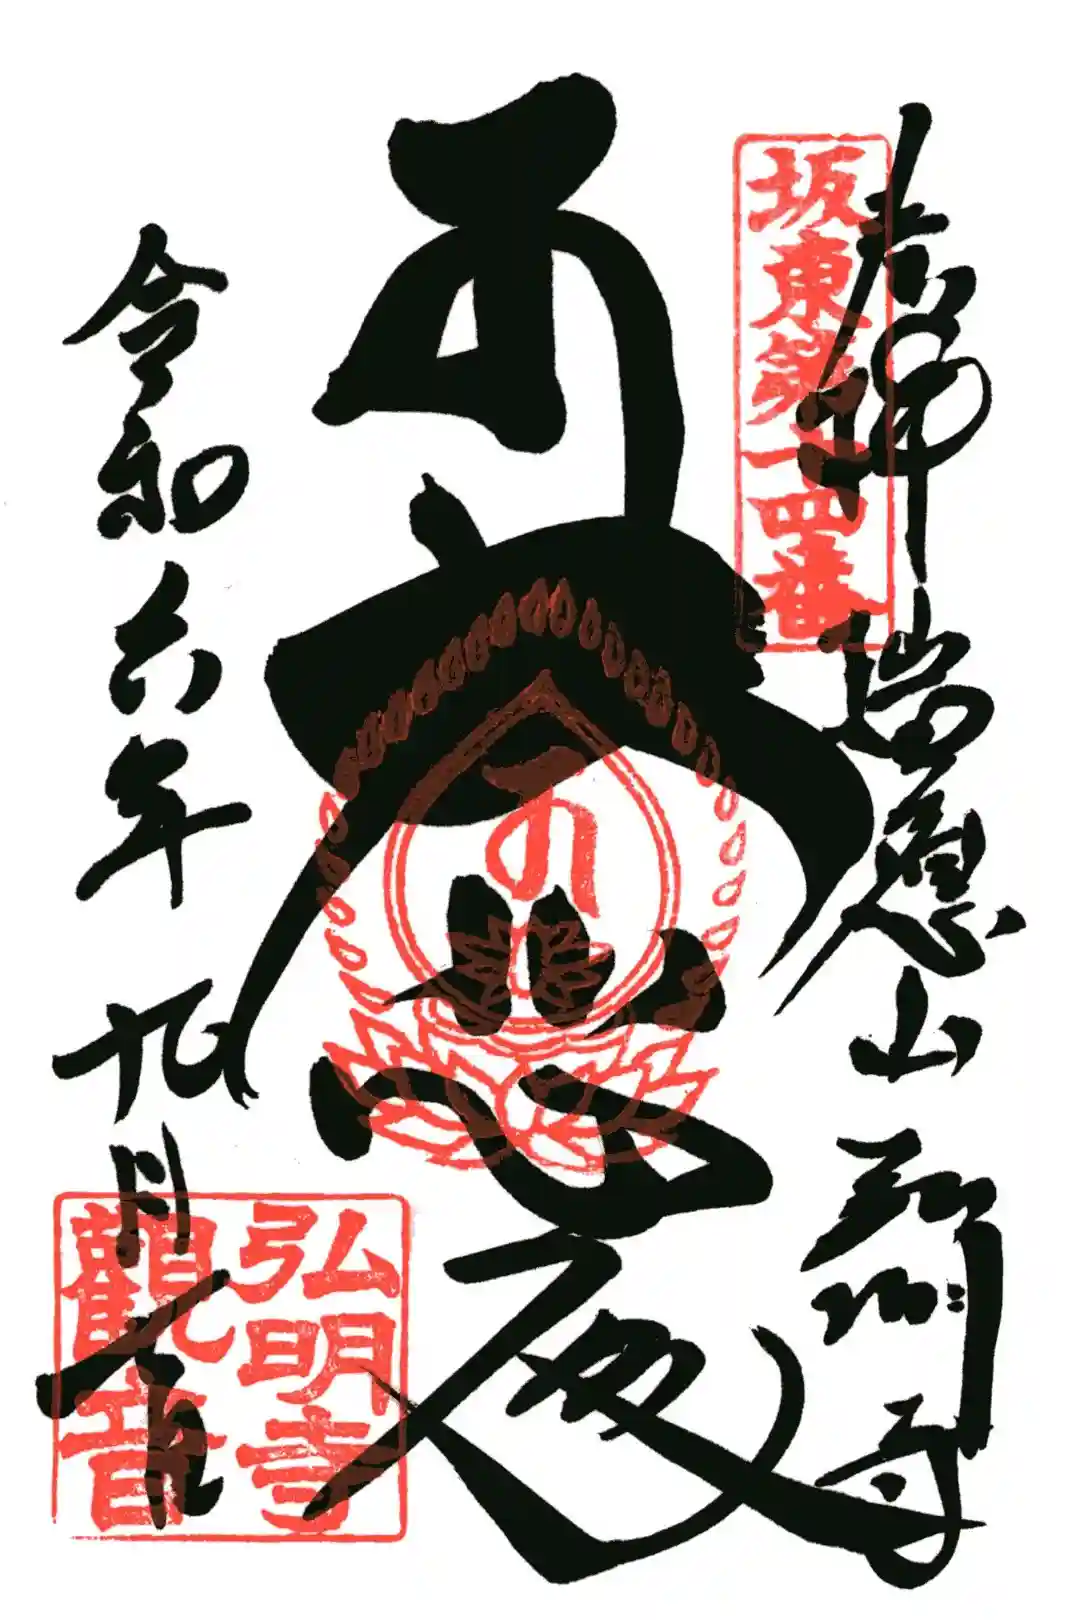 坂東第十四番
奉拝 瑞應山 弘明寺
大悲殿
令和六年九月
弘明寺
觀音